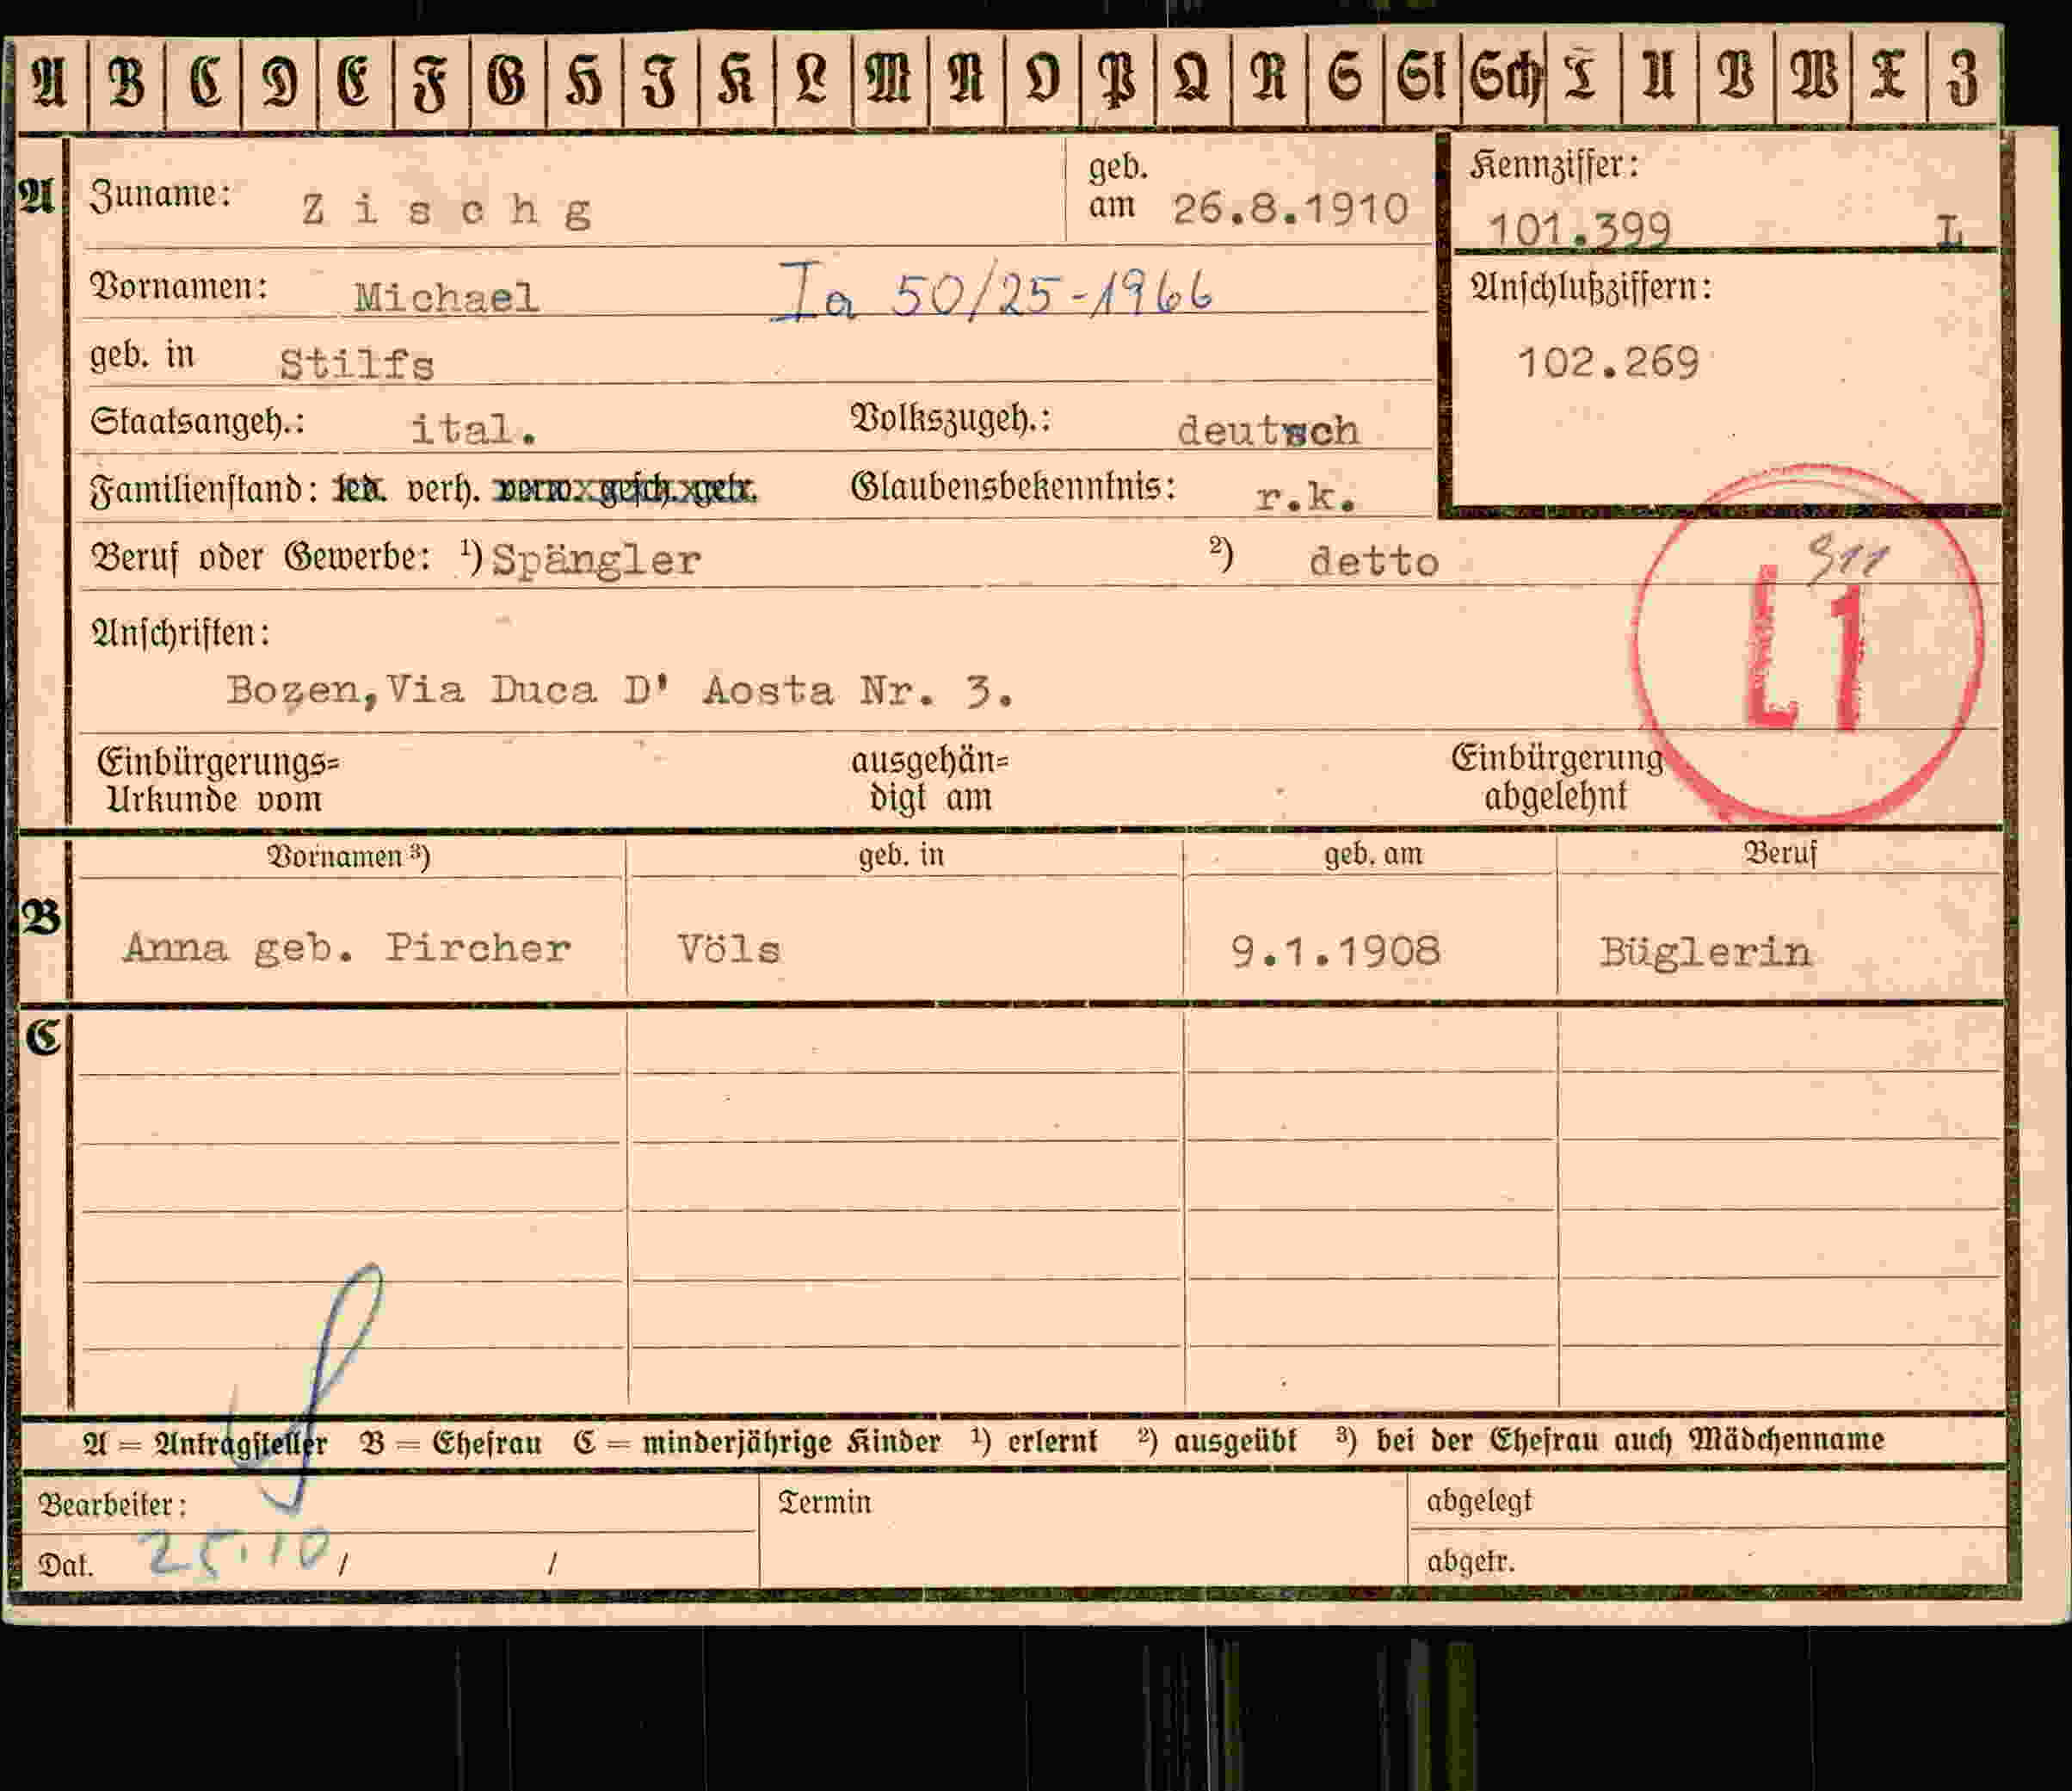 A B C D E F G H I K L M N O P Q R S St Sch T U V W X Z
A
Zuname: Zischg
geb. am 26.8.1910
Kennziffer:
101.399 L
Vornamen: Michael Ia 50/25-1966
Anschlußziffern:
102.269
geb. in Stilfs
Staatsangeh.: ital. Volkszugeh.: deutsch
Familienstand: led. verh. verw. gesch. getr. Glaubensbekenntnis: r.k.
Beruf oder Gewerbe: ¹) Spängler ²) detto
L1
Anschriften:
Bozen, Via Duca D' Aosta Nr. 3.
Einbürgerungs= ausgehän= Einbürgerung
Urkunde vom digt am abgelehnt
B
Vornamen ³) geb. in geb. am Beruf
Anna geb. Pircher Völs 9.1.1908 Büglerin
C
A = Antragsteller B = Ehefrau C = minderjährige Kinder ¹) erlernt ²) ausgeübt ³) bei der Ehefrau auch Mädchenname
Bearbeiter: Termin abgelegt
Dat. 25.10 / / abgetr.